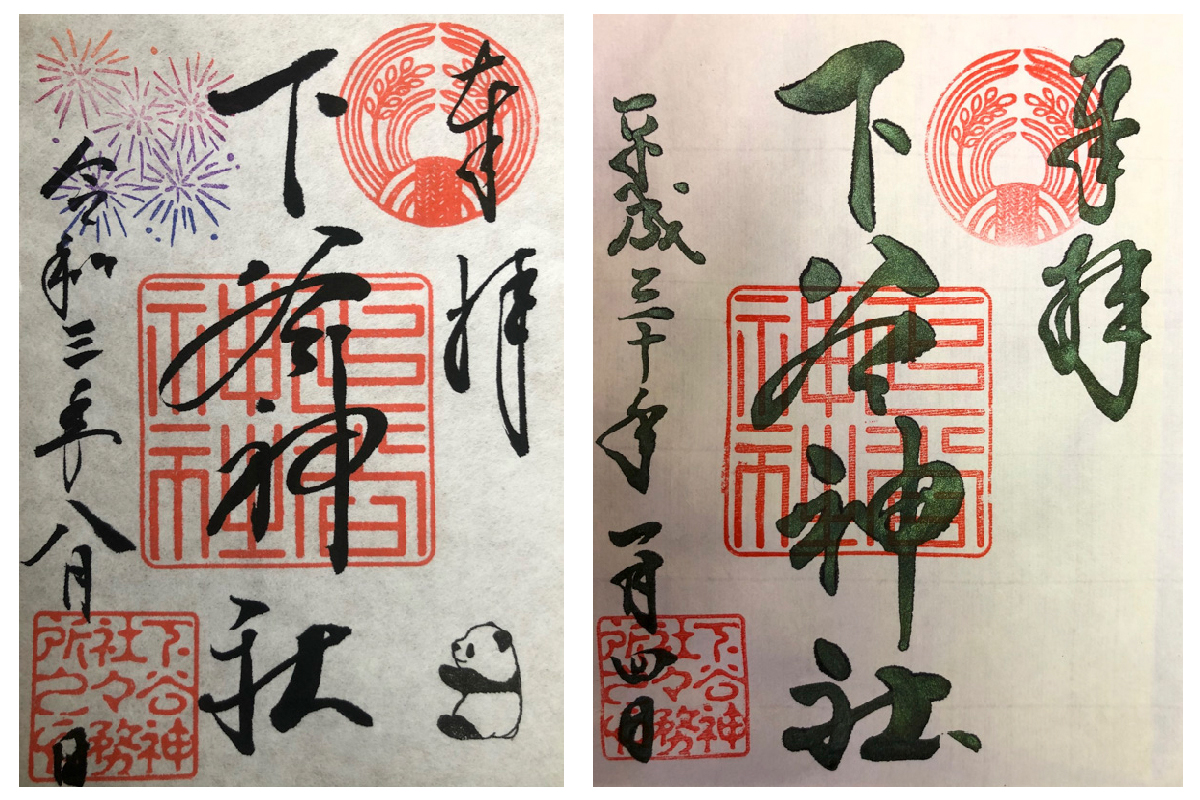 奉拝
下谷神社
令和三年八月 日
下谷神
社々務
所之印
下谷
神社
奉拝
下谷神社
平成三十年一月四日
下谷神
社々務
所之印
下谷
神社